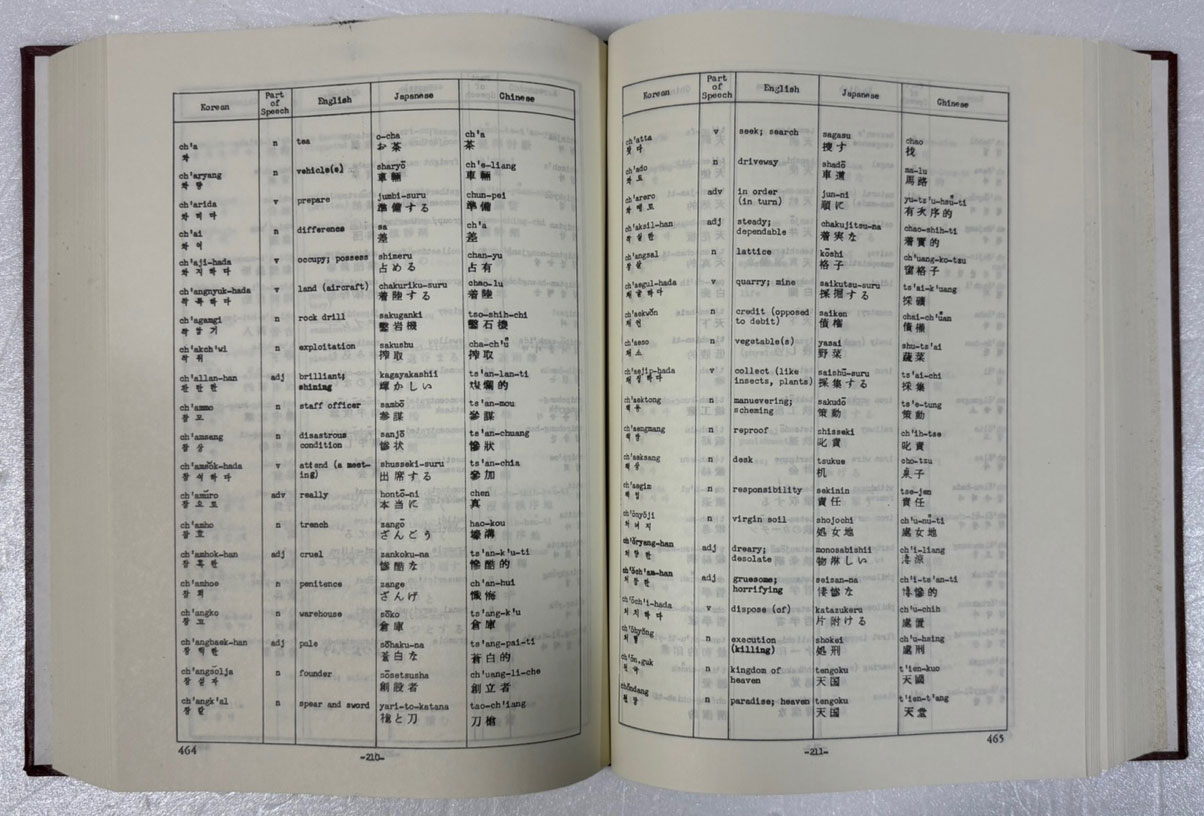 Korean Part of Speech English Japanese Chinese
ch'a n tea o-cha ch'a
차 お茶 茶
ch'aryang n vehicle(s) sharyō ch'e-liang
차량 車輛 車輛
ch'arida v prepare jumbi-suru chun-pei
차리다 準備する 準備
ch'ai n difference sa ch'a
차이 差 差
ch'aji-hada v occupy; possess shimeru chan-yu
차지하다 占める 占有
ch'angnyuk-hada v land (aircraft) chakuriku-suru chao-lu
착륙하다 着陸する 着陸
ch'agamgi n rock drill sakuganki tso-shih-chi
착암기 鑿岩機 鑿石機
ch'akch'wi n exploitation sakushu cha-ch'ü
착취 搾取 搾取
ch'allan-han adj brilliant; kagayakashii ts'an-lan-ti
찬란한 shining 輝かしい 燦爛的
ch'ammo n staff officer sambō ts'an-mou
참모 参謀 參謀
ch'amsang n disastrous sanjō ts'an-chuang
참상 condition 惨状 慘狀
ch'amsŏk-hada v attend (a meet- shusseki-suru ts'an-chia
참석하다 ing) 出席する 參加
ch'amŭro adv really hontō-ni chen
참으로 本当に 真
ch'amho n trench zangō hao-kou
참호 ざんごう 壕溝
ch'amhok-han adj cruel zankoku-na ts'an-k'u-ti
참혹한 惨酷な 慘酷的
ch'amhoe n penitence zange ch'an-hui
참회 ざんげ 懺悔
ch'angko n warehouse sōko ts'ang-k'u
창고 倉庫 倉庫
ch'angbaek-han adj pale sōhaku-na ts'ang-pai-ti
창백한 蒼白な 蒼白的
ch'angsŏlja n founder sōsetsusha ch'uang-li-che
창설자 創設者 創立者
ch'angk'al n spear and sword yari-to-katana tao-ch'iang
창칼 槍と刀 刀槍
464
-210-
Korean Part of Speech English Japanese Chinese
ch'atta v seek; search sagasu chao
찾다 捜す 找
ch'ado n driveway shadō ma-lu
차도 車道 馬路
ch'arero adv in order jun-ni yu-ts'u-hsü-ti
차례로 (in turn) 順に 有次序的
ch'aksil-han adj steady; chakujitsu-na chao-shih-ti
착실한 dependable 着実な 着實的
ch'angsal n lattice kōshi ch'uang-ko-tzu
창살 格子 窗格子
ch'aegul-hada v quarry; mine saikutsu-suru ts'ai-k'uang
채굴하다 採掘する 採礦
ch'aekwŏn n credit (opposed saiken chai-ch'üan
채권 to debit) 債権 債權
ch'aeso n vegetable(s) yasai shu-ts'ai
채소 野菜 蔬菜
ch'aejip-hada v collect (like saishū-suru ts'ai-chi
채집하다 insects, plants) 採集する 採集
ch'aektong n manuevering; sakudō ts'e-tung
책동 scheming 策動 策動
ch'aengmang n reproof shisseki ch'ih-tse
책망 叱責 叱責
ch'aeksang n desk tsukue cho-tzu
책상 机 桌子
ch'aegim n responsibility sekinin tse-jen
책임 責任 責任
ch'ŏnyŏji n virgin soil shojochi ch'u-nü-ti
처녀지 処女地 處女地
ch'ŏryang-han adj dreary; monosabishii ch'i-liang
처량한 desolate 物淋しい 凄涼
ch'ŏch'am-han adj gruesome; seizan-na ch'i-ts'an-ti
처참한 horrifying 悽惨な 凄慘的
ch'ŏch'i-hada v dispose (of) katazukeru ch'u-chih
처치하다 片附ける 處置
ch'ŏhyŏng n execution shokei ch'u-hsing
처형 (killing) 処刑 處刑
ch'ŏn.guk n kingdom of tengoku t'ien-kuo
천국 heaven 天国 天國
chŏndang n paradise; heaven tengoku t'ien-t'ang
천당 天国 天堂
465
-211-